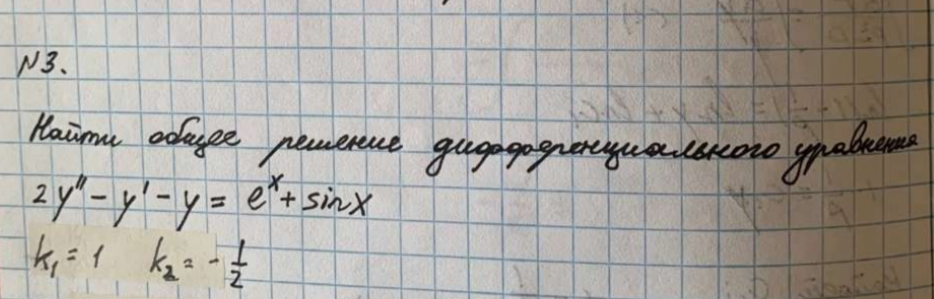 N3.
Найти общее решение дифференциального уравнения
2y'' - y' - y = eˣ + sinx
k₁ = 1 k₂ = - 1/2